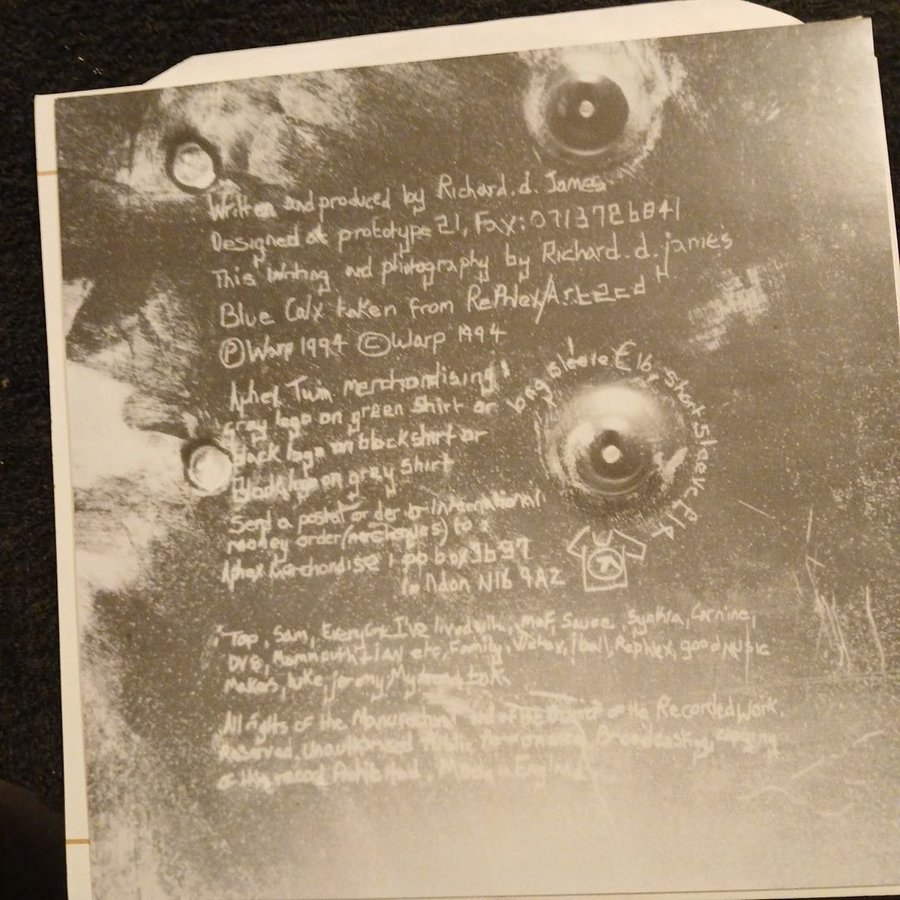 Written and produced by Richard. d. James.
Designed at prototype 21, Fax: 0713726841
This writing and photography by Richard. d. james
Blue Calx taken from Rephlex/
Ⓟ Warp 1994 © Warp 1994
Aphex Twin merchandising!
gray logo on green shirt or
black logo on black shirt or
Black logo on gray shirt
long sleeve £16, short sleeve £14
Send a postal order or international
money order (no cheques) to:
Aphex merchandise
london N16 9AZ
Sam, Everyone I've lived with,
etc, Family, Rephlex, good music
makers, luke, jeremy,
All rights of the Manufacturer and of the Owner of the Recorded Work.
Reserved. Unauthorised Public Performance, Broadcasting, copying
of this record Prohibited. Made in England